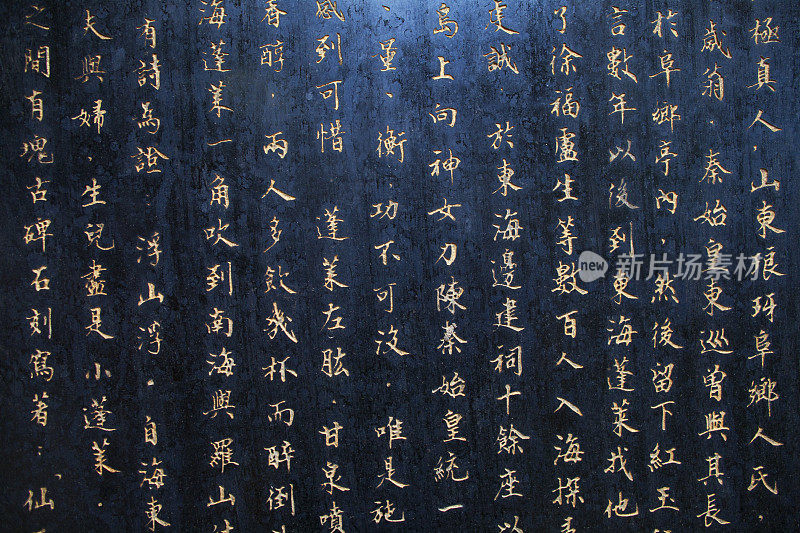 極真人，山東琅玡阜鄉人氏，
歲翁．秦始皇東巡曾與其長
於阜鄉亭內，然後留下紅玉
言數年以後到東海蓬萊找他
了徐福盧生等數百人入海探
虔誠．於東海邊建祠十餘座以
島上向神女力陳秦始皇統一
、量、衡．功不可沒．唯是施
感到可惜　蓬萊左肱．甘泉噴
香醇．兩人多飲幾杯而醉倒
海蓬萊一角吹到南海與羅山
有詩為證：浮山浮．自海東
夫與婦，生兒盡是小蓬萊．
之間有塊古碑石刻寫著：「仙
新片场
new